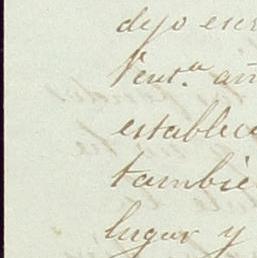 dejo escr
Vent.ª añ
establece
tambie
lugar y